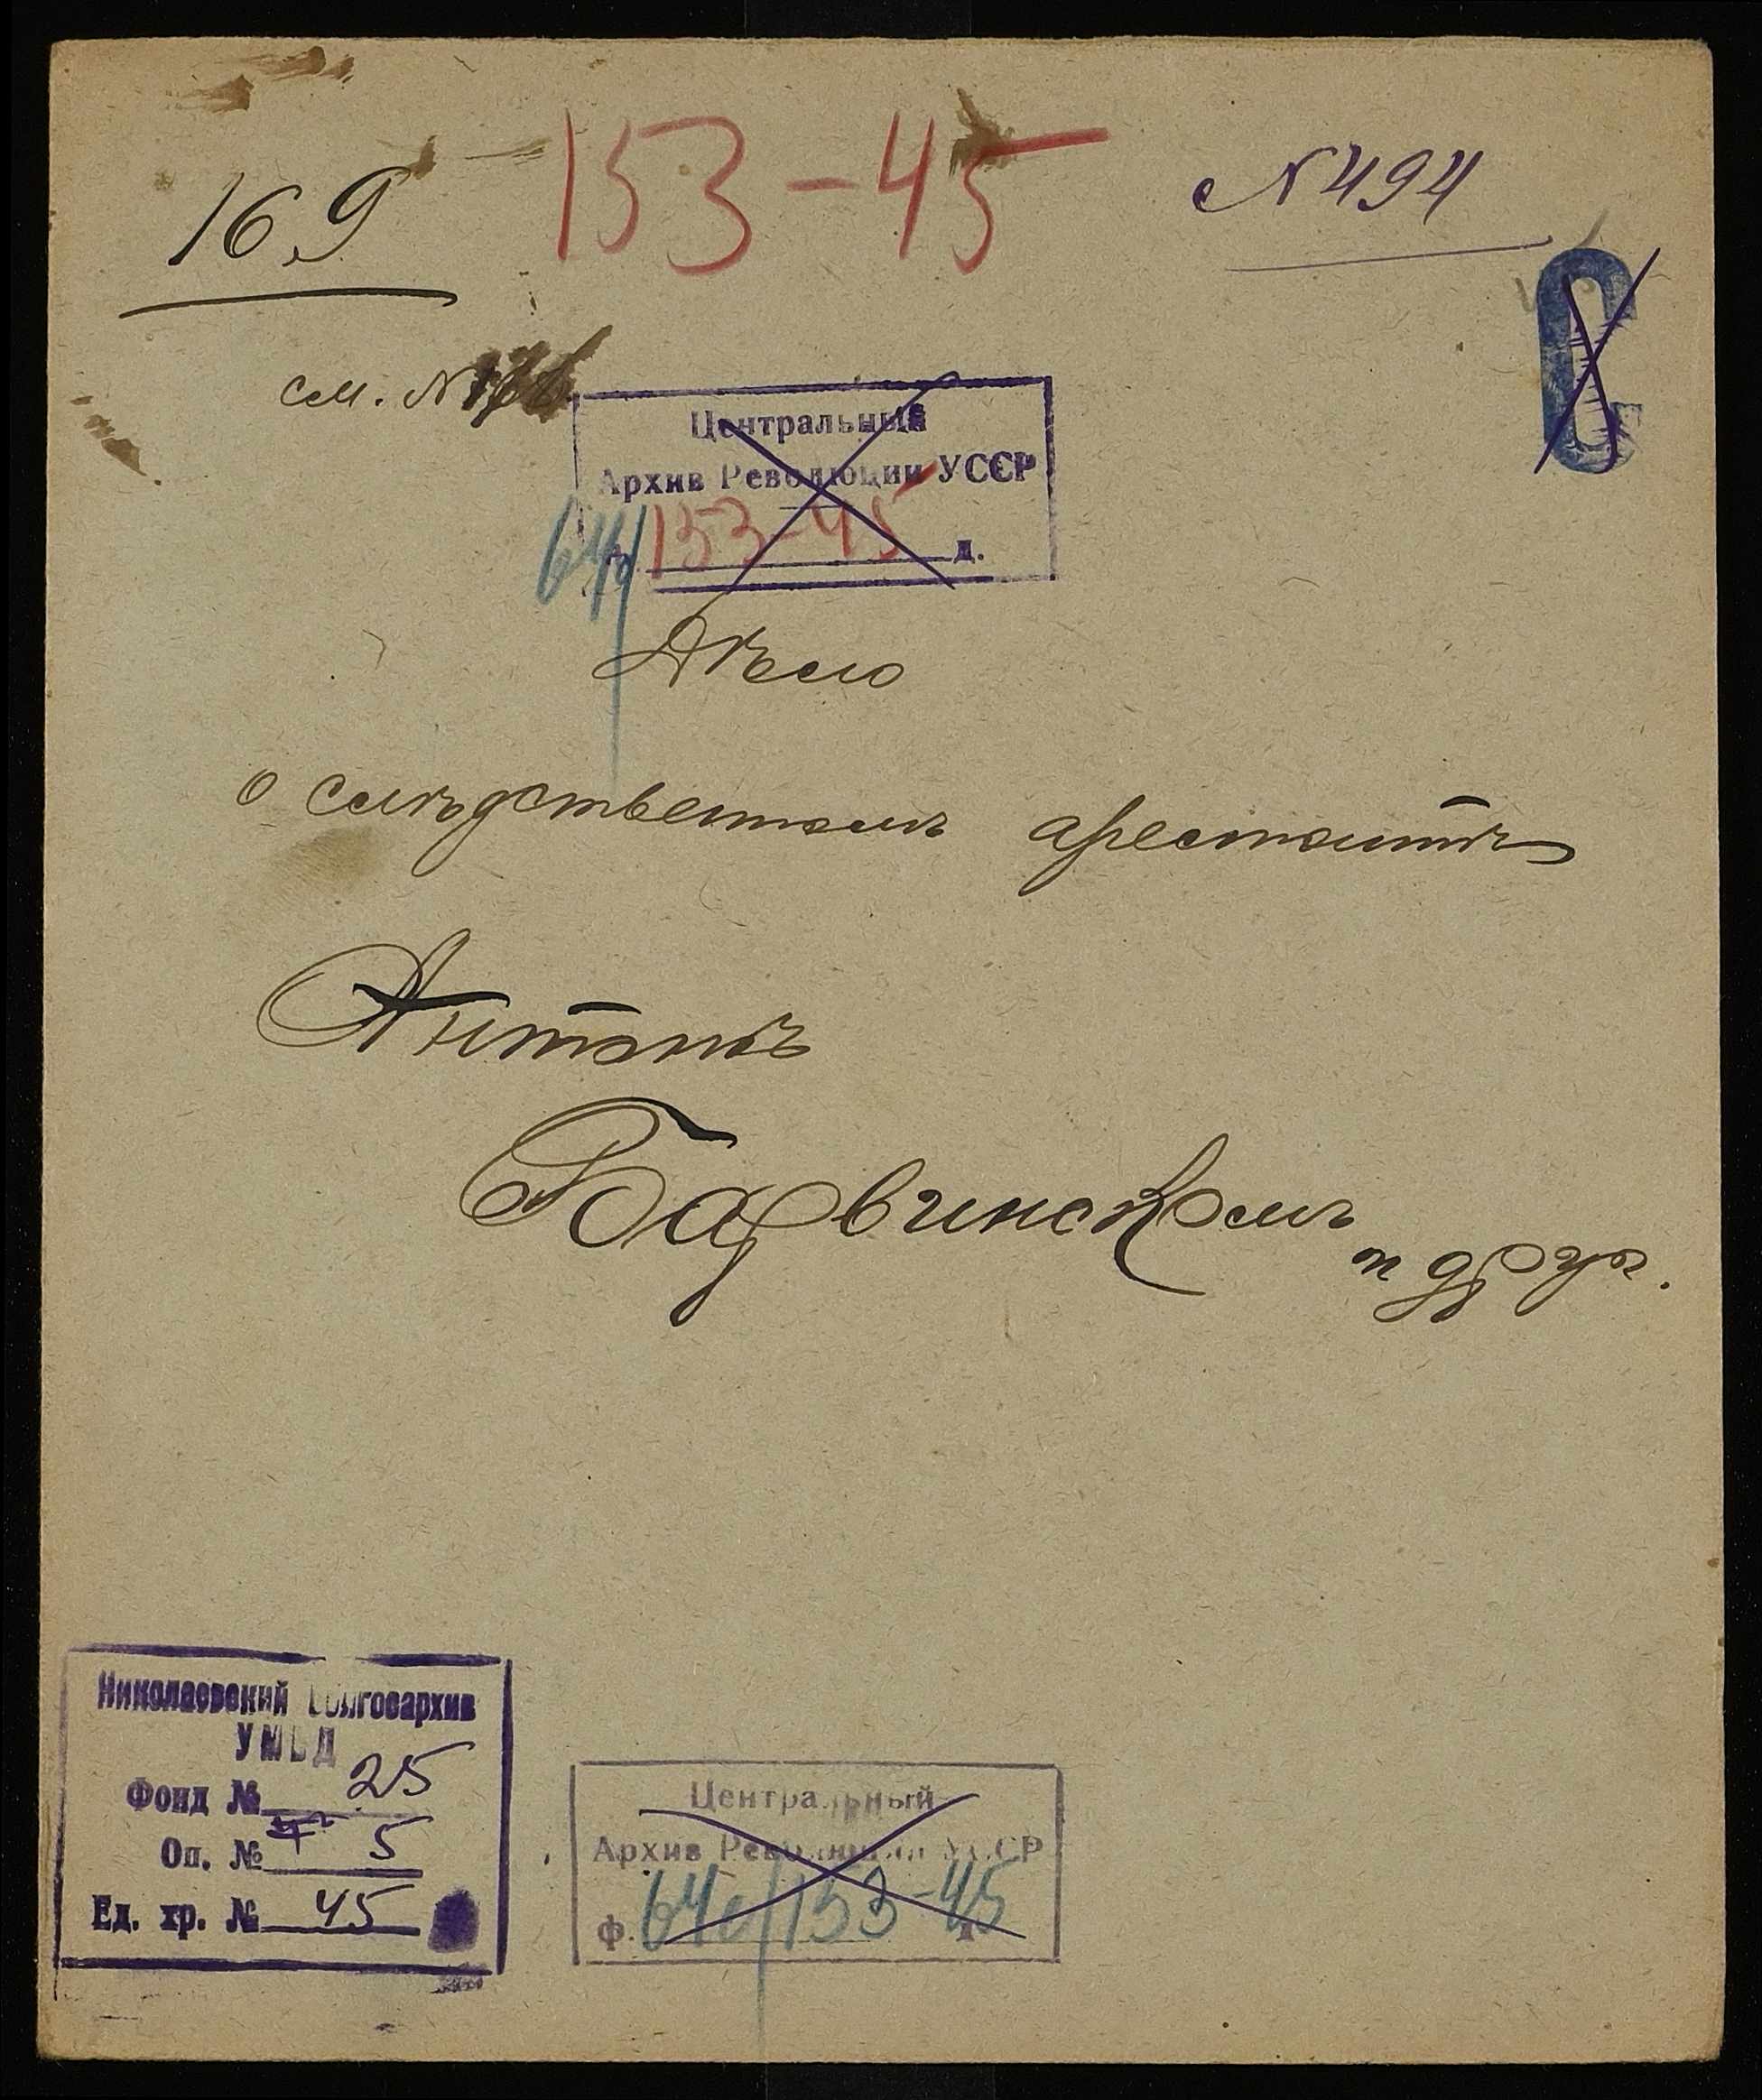 153-45
169
№ 494
см. №
С
Центральный
Архив Революции УССР
153-45 д.
Дѣло
о слѣдственномъ арестантѣ
Антонѣ
Барвинскомъ
и друг.
Николаевский Облгосархив
УМВД
Фонд № 25
Оп. № 5
Ед. хр. № 45
Центральный
Архив Революции УССР
ф. 64с/153-45